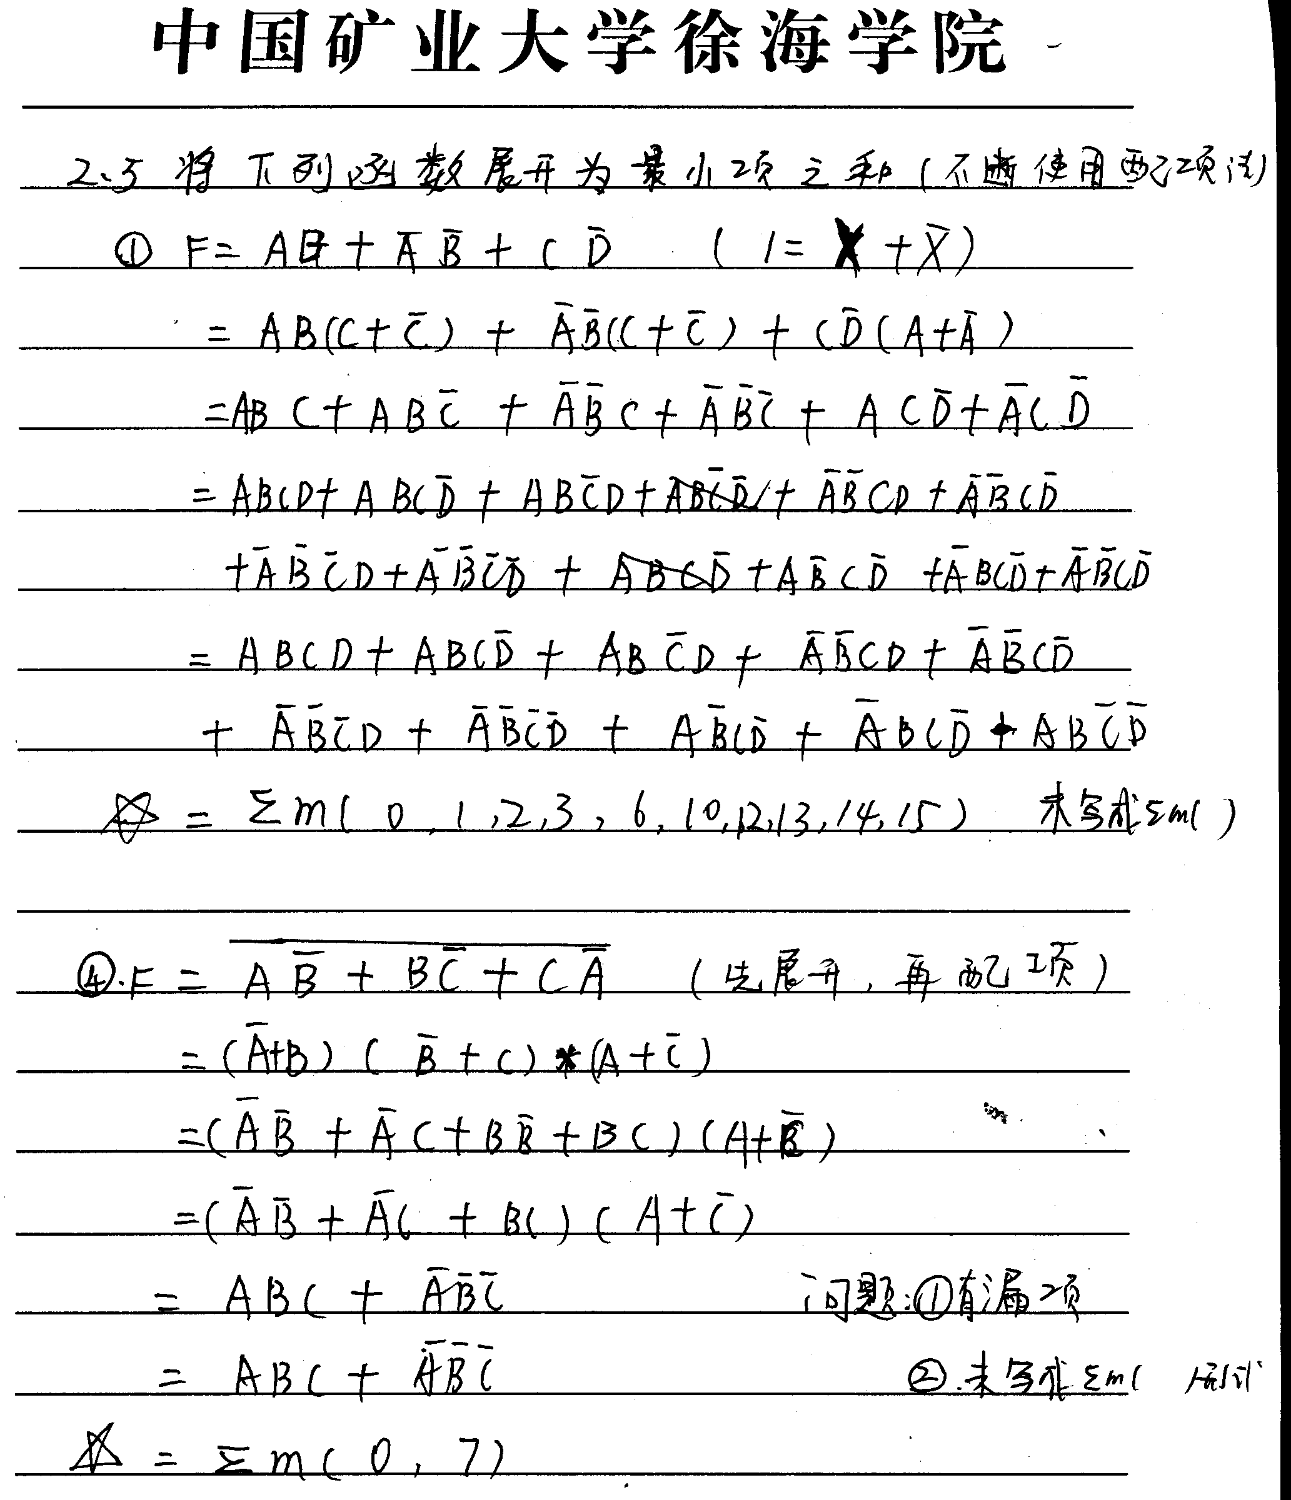 中国矿业大学徐海学院
2.5 将下列函数展开为最小项之和(不断使用配项法)
① F= AB + A̅ B̅ + C D̅ (1= X + X̅)
= AB(C+C̅) + A̅B̅(C+C̅) + CD̅(A+A̅)
=ABC+ABC̅ + A̅B̅C+A̅B̅C̅ + ACD̅+A̅CD̅
=ABCD+ABCD̅ + ABC̅D+ABC̅D̅ + A̅B̅CD+A̅B̅CD̅
+A̅B̅C̅D+A̅B̅C̅D̅ + ABCD̅+AB̅CD̅ +A̅BCD̅+A̅B̅CD̅
= ABCD+ABCD̅ + ABC̅D+ A̅B̅CD+A̅B̅CD̅
+ A̅B̅C̅D + A̅B̅C̅D̅ + AB̅CD̅ + A̅BCD̅ + ABC̅D̅
☆ = Σm( 0,1,2,3,6,10,12,13,14,15) 未写成Σm( )
④.F = \overline{AB̅ + BC̅ + CA̅} (先展开,再配项)
=(A̅+B)(B̅+C)*(A+C̅)
=(A̅B̅ + A̅C+BB̅+BC)(A+C̅)
=(A̅B̅ + A̅C + BC)(A+C̅)
= ABC + A̅B̅C̅ 问题:①有漏项
= ABC + A̅B̅C̅ ②.未写成Σm( )形式
☆ = Σm(0,7)